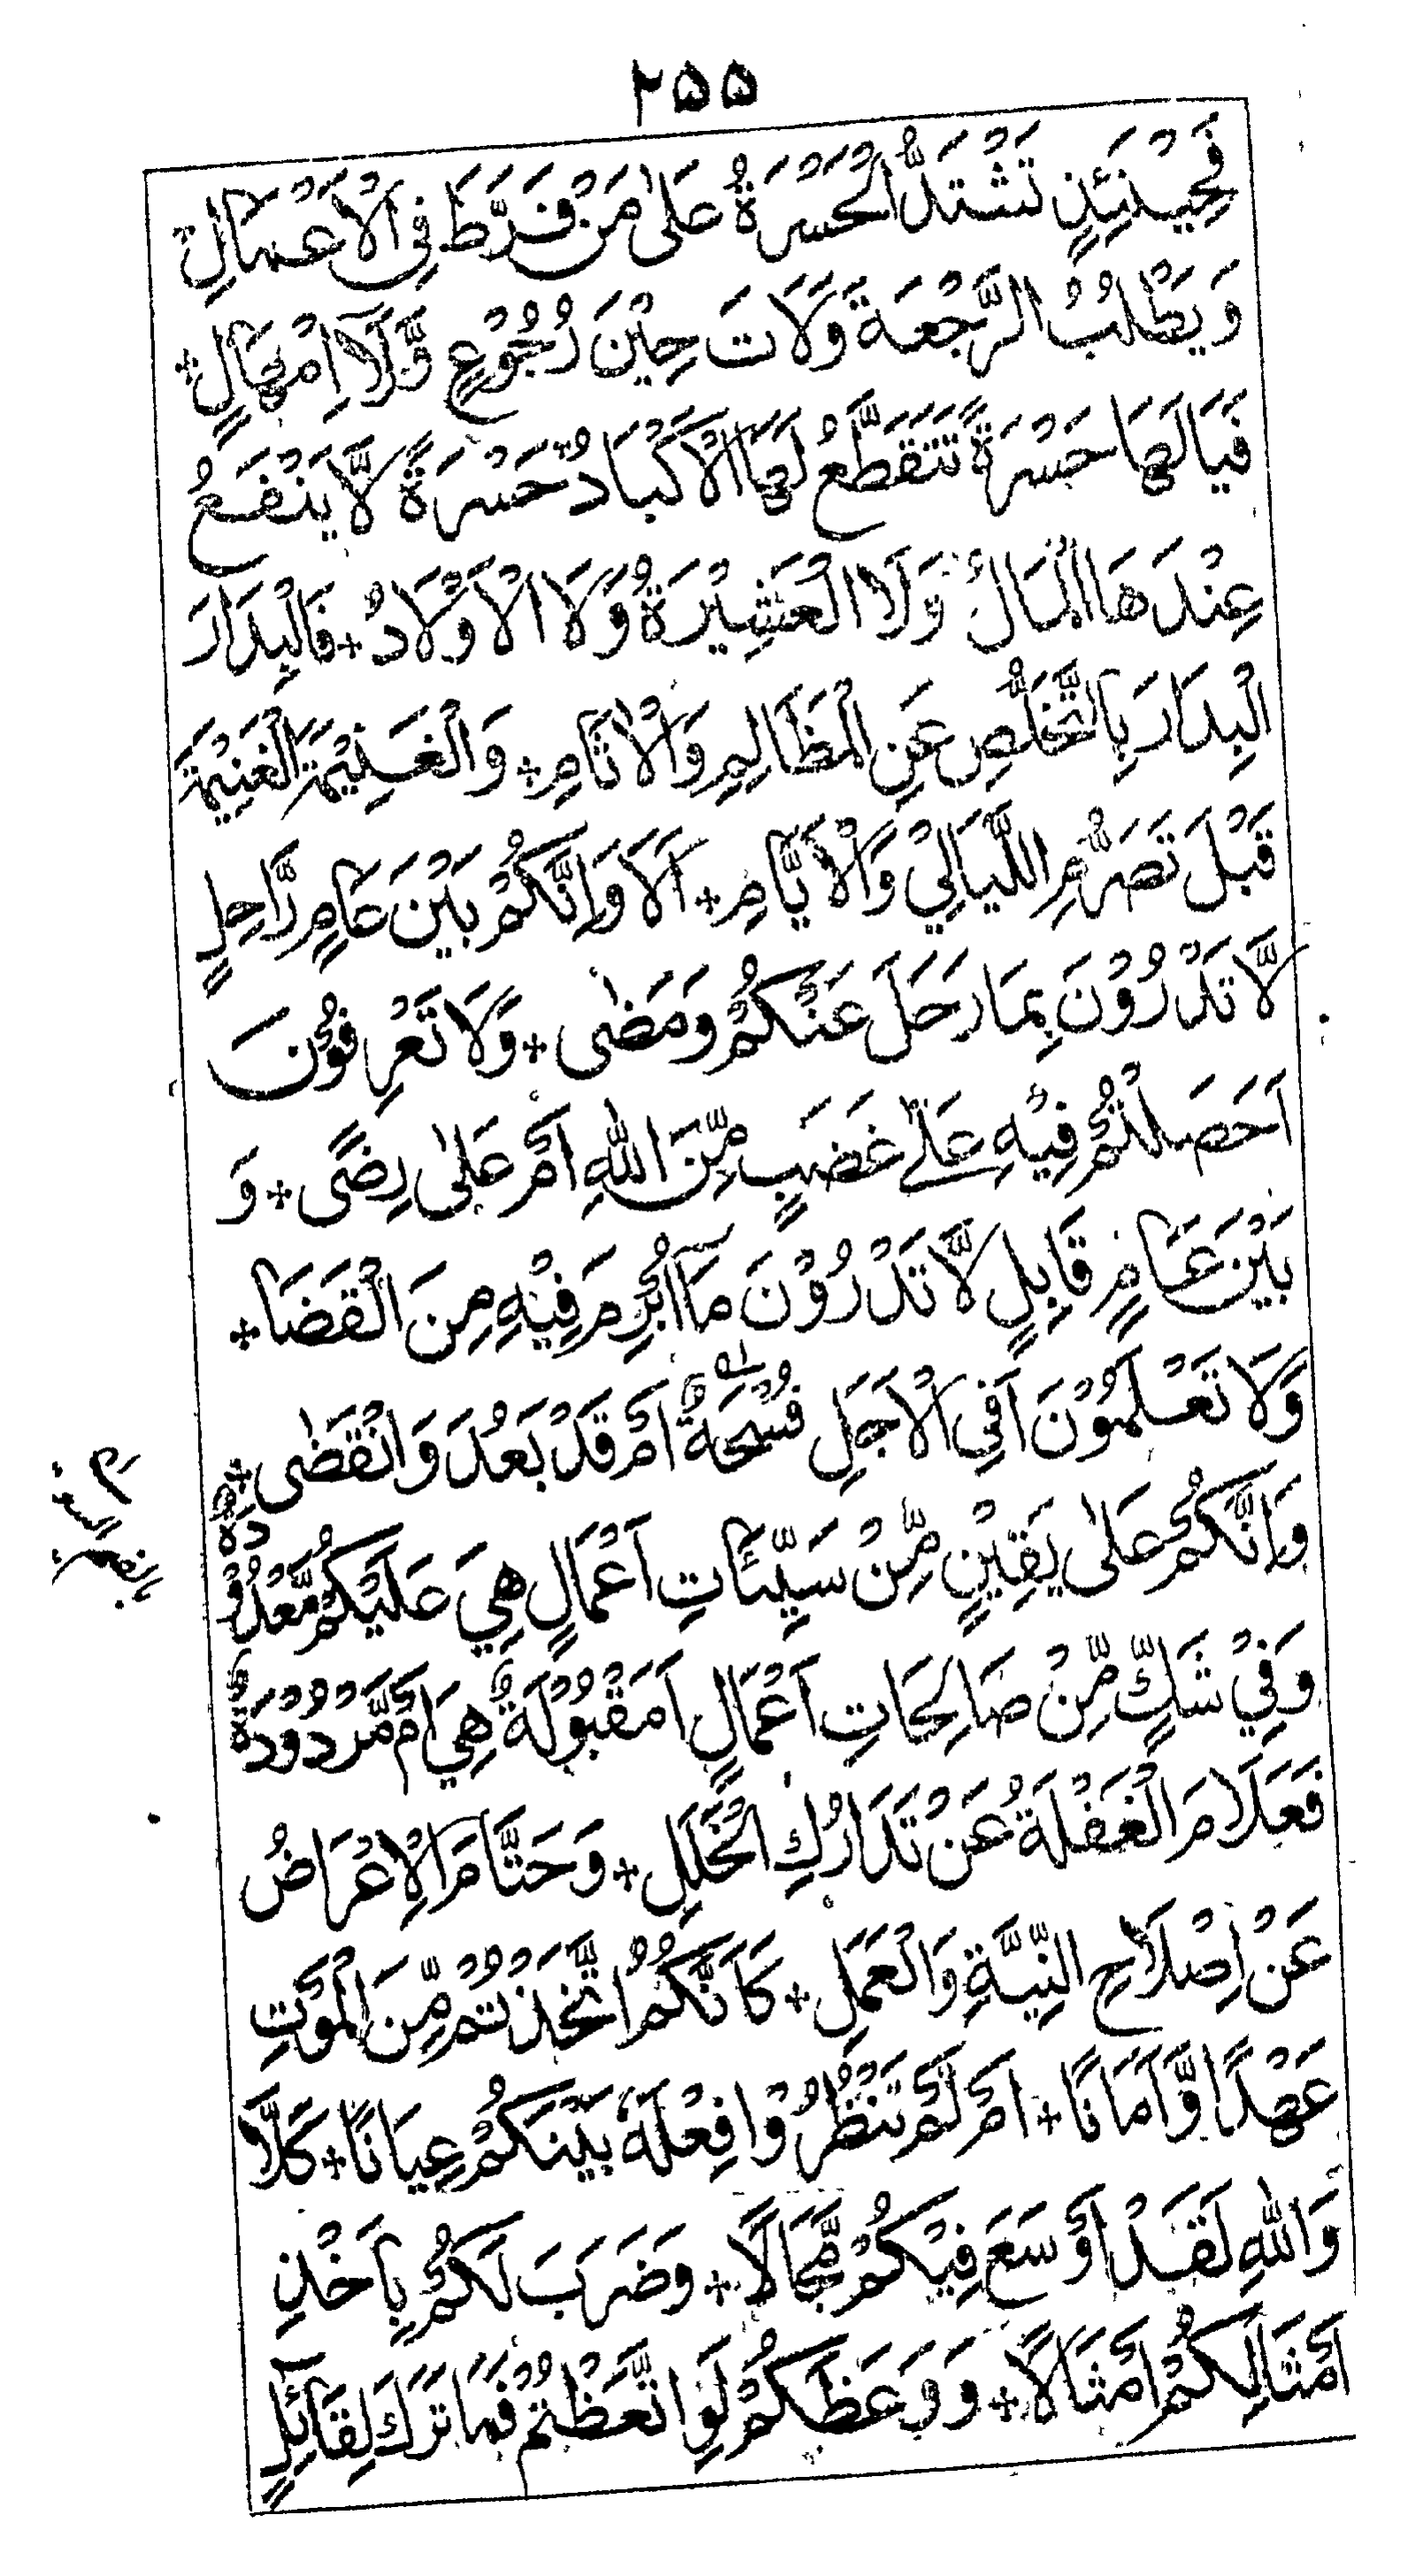 ۲۵۵
فَحِيْنَئِذٍ تَشْتَدُّ الْحَسْرَةُ عَلٰى مَنْ فَرَّطَ فِى الْاَعْمَالِ ؞
وَيَطْلُبُ الرَّجْعَةَ وَلَاتَ حِيْنَ رُجُوْعٍ وَّلَا اِمْهَالٍ ؞
فَيَا لَهَا حَسْرَةً تَتَقَطَّعُ لَهَا الْاَكْبَادُ حَسْرَةً لَّا يَنْفَعُ
عِنْدَهَا الْمَالُ وَلَا الْعَشِيْرَةُ وَلَا الْاَوْلَادُ ؞ فَالْبِدَارَ
الْبِدَارَ بِالتَّخَلُّصِ عَنِ الْمَظَالِمِ وَالْاٰثَامِ ؞ وَالْغَنِيْمَةَ الْغَنِيْمَةَ
قَبْلَ تَصَرُّمِ اللَّيَالِيْ وَالْاَيَّامِ ؞ اَلَا وَاِنَّكُمْ بَيْنَ عَامٍ رَّاحِلٍ
لَّا تَدْرُوْنَ بِمَا رَحَلَ عَنْكُمْ وَمَضٰى ؞ وَلَا تَعْرِفُوْنَ
اَحَصَلْتُمْ فِيْهِ عَلٰى غَضَبٍ مِّنَ اللهِ اَمْ عَلٰى رِضًى ؞ وَ
بَيْنَ عَامٍ قَابِلٍ لَّا تَدْرُوْنَ مَا اُبْرِمَ فِيْهِ مِنَ الْقَضَا ؞
وَلَا تَعْلَمُوْنَ اَفِى الْاَجَلِ فُسْحَةٌ اَمْ قَدْ بَعُدَ وَانْقَضٰى ؞
وَاِنَّكُمْ عَلٰى يَقِيْنٍ مِّنْ سَيِّئَاتِ اَعْمَالٍ هِيَ عَلَيْكُمْ مَّعْدُوْدَةٌ
وَفِيْ شَكٍّ مِّنْ صَالِحَاتِ اَعْمَالٍ اَمَقْبُوْلَةٌ هِيَ اَمْ مَّرْدُوْدَةٌ
فَعَلَامَ الْغَفْلَةُ عَنْ تَدَارُكِ الْخَلَلِ ؞ وَحَتَّامَ الْاِعْرَاضُ
عَنْ اِصْلَاحِ النِّيَّةِ وَالْعَمَلِ ؞ كَاَنَّكُمُ اتَّخَذْتُمْ مِّنَ الْمَوْتِ
عَهْدًا وَّاَمَانًا ؞ اَمْ لَمْ تَنْظُرُوْا فِعْلَهٗ بَيْنَكُمْ عِيَانًا ؞ كَلَّا
وَاللهِ لَقَدْ اَوْسَعَ فِيْكُمْ مَّجَالًا ؞ وَضَرَبَ لَكُمْ بِاَخْذِ
اَمْثَالِكُمْ اَمْثَالًا ؞ وَوَعَظَكُمْ لَوِ اتَّعَظْتُمْ فَمَا تَرَكَ لِقَائِلٍ
بالضم السعة